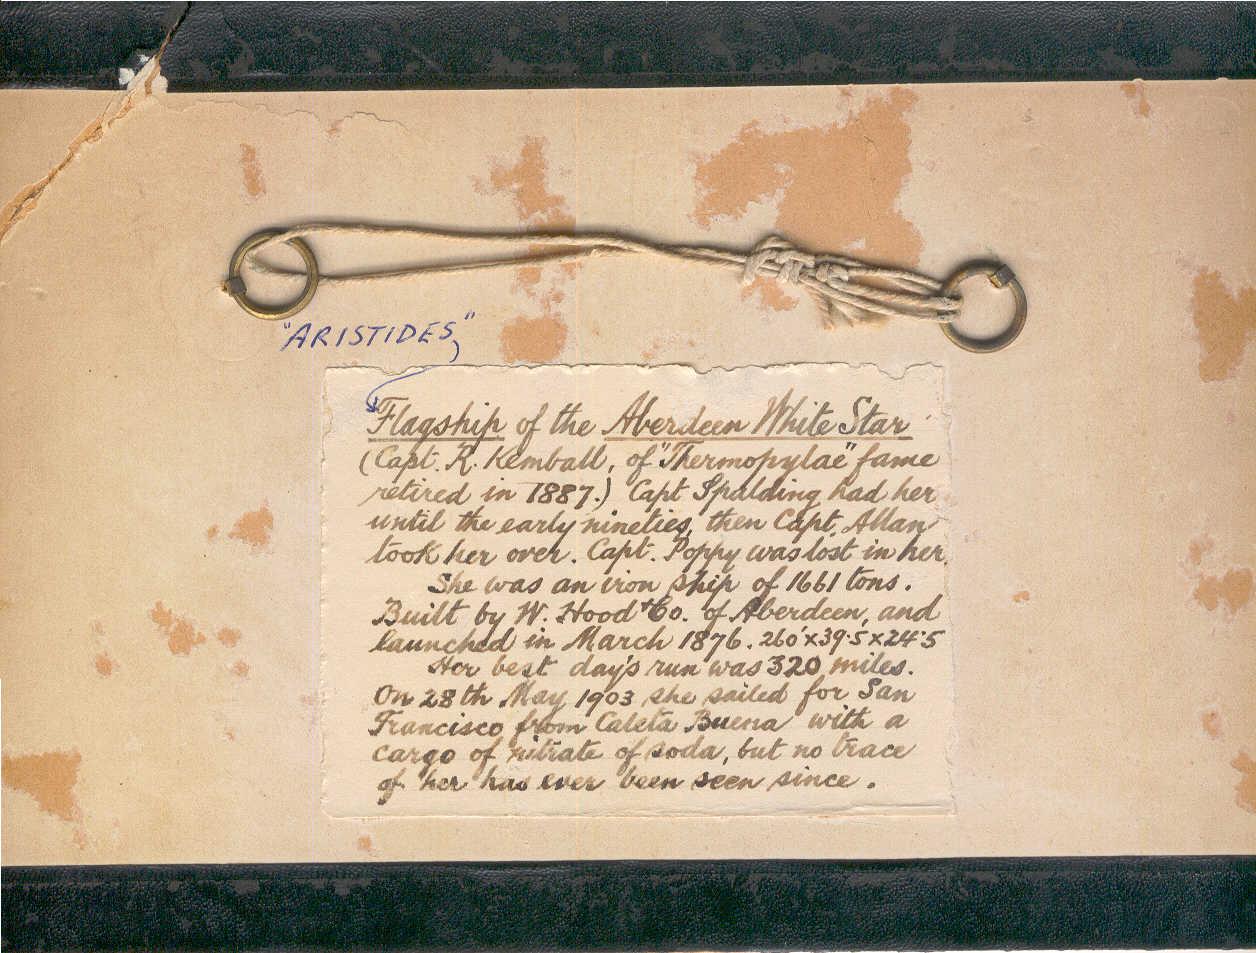 "ARISTIDES"
Flagship of the Aberdeen White Star
(Capt. R. Kemball, of "Thermopylae" fame
retired in 1887.) Capt Spalding had her
until the early nineties, then Capt. Allan
took her over. Capt. Poppy was lost in her.
She was an iron ship of 1661 tons.
Built by W. Hood & Co. of Aberdeen, and
launched in March 1876. 260'x39·5x24·5
Her best day's run was 320 miles.
On 28th May 1903 she sailed for San
Francisco from Caleta Buena with a
cargo of nitrate of soda, but no trace
of her has ever been seen since.